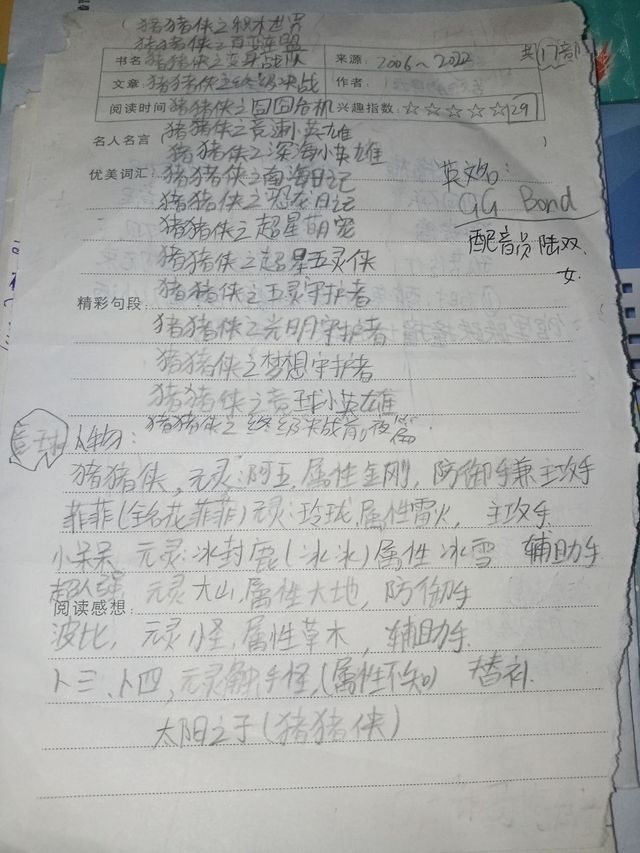 猪猪侠之积木世界
猪猪侠之百变联盟
书名 猪猪侠之变身战队 来源: 2006~2022 共17部
文章 猪猪侠之终级决战 作者:
阅读时间 猪猪侠之囧囧危机 兴趣指数:☆☆☆☆☆ 29
名人名言 猪猪侠之竞速小英雄
猪猪侠之深海小英雄
优美词汇: 猪猪侠之南海日记 英文名:
猪猪侠之恐龙日记 GG Bond
猪猪侠之超星萌宠 配音员陆双,
猪猪侠之超星五灵侠 女.
精彩句段: 猪猪侠之五灵守护者
猪猪侠之光明守护者
猪猪侠之梦想守护者
猪猪侠之竞球小英雄
人物: 猪猪侠之终级决战前夜篇
猪猪侠,元灵:阿五,属性金刚,防御手兼主攻手
菲菲(全名花菲菲)元灵:玲珑,属性雷火,主攻手
小呆呆 元灵:冰封鹿(冰冰)属性冰雪 辅助手
超人强 元灵大山,属性大地,防御手
阅读感想:
波比,元灵小怪,属性草木,辅助手
卜三、卜四,元灵触手怪,(属性不知) 替补.
太阳之子(猪猪侠)